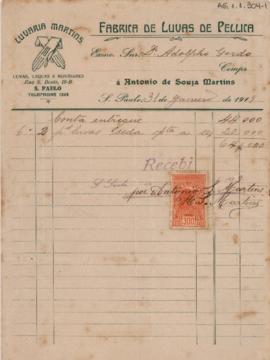 AG.1.1.304-1
LUVARIA MARTINS
FABRICA DE LUVAS DE PELLICA
Exmo. Snr. Dr. Adolpho Gordo
Compr.
LUVAS, LEQUES E NOVIDADES
á Antonio de Souza Martins
S. PAULO
S. Paulo, 31 de Janeiro de 190
Conta entregue 42.000
6 2 luvas 22.000
64.000
Recebi
S. Paulo
por Antonio S. Martins
M. S. Martins
300